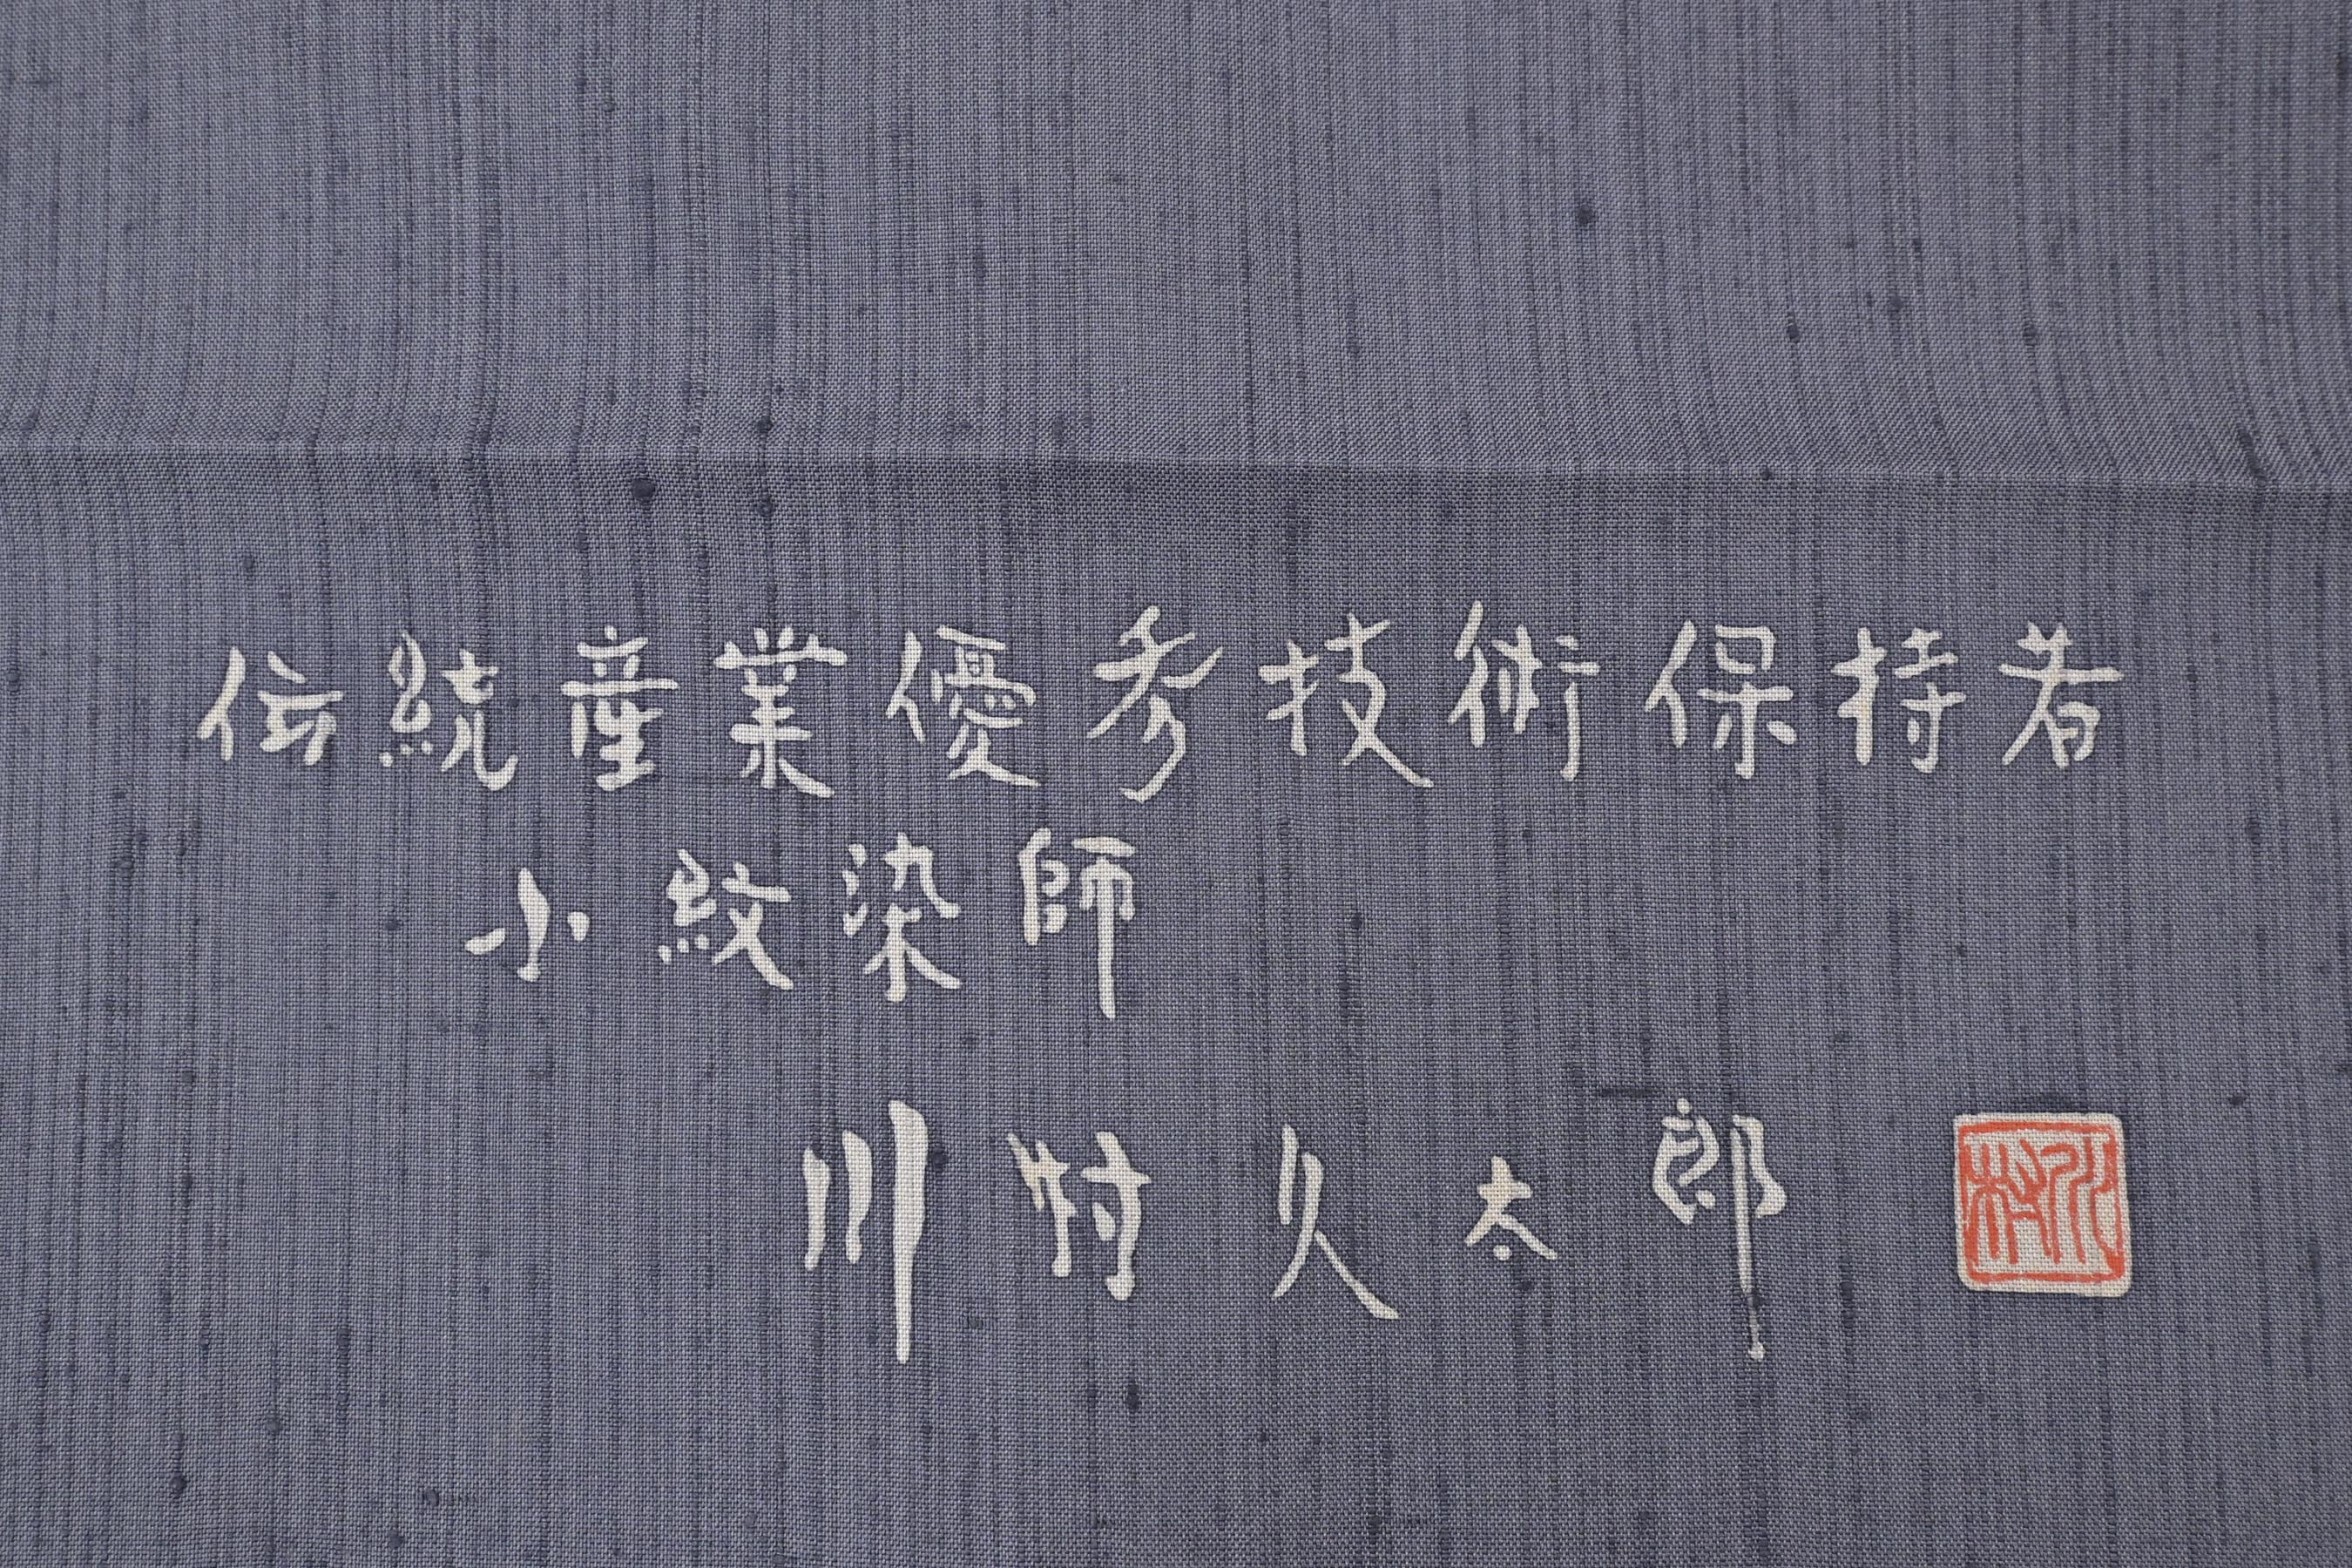 伝統産業優秀技術保持者
小紋染師
川村久太郎
川村